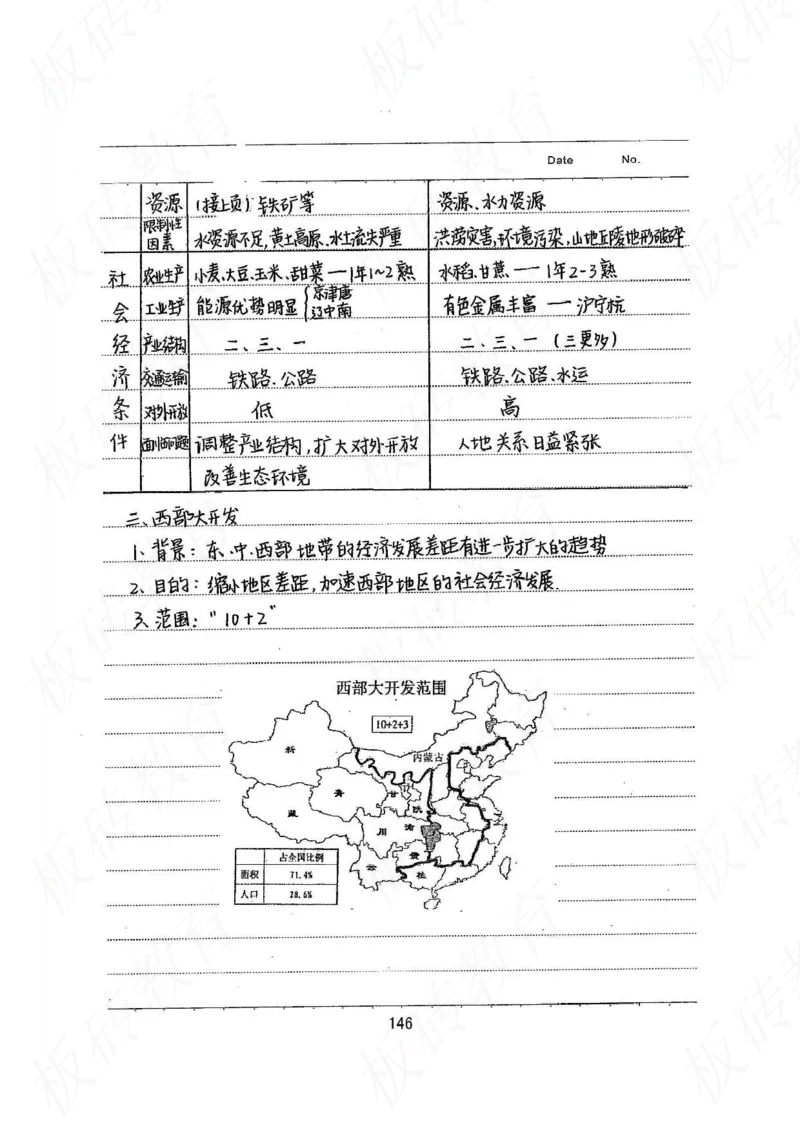 Date No.
资源 (接上页)铁矿等 资源、水力资源
限制性因素 水资源不足,黄土高原、水土流失严重 洪涝灾害,环境污染,山地丘陵地形破碎
社会经济条件
农业生产 小麦、大豆、玉米、甜菜——1年1~2熟 水稻、甘蔗——1年2-3熟
工业生产 能源优势明显{京津唐 辽中南 有色金属丰富——沪宁杭
产业结构 二、三、一 二、三、一(三更多)
交通运输 铁路、公路 铁路、公路、水运
对外开放 低 高
面临问题 调整产业结构,扩大对外开放 人地关系日益紧张
改善生态环境
三、西部大开发
1、背景:东、中、西部地带的经济发展差距有进一步扩大的趋势
2、目的:缩小地区差距,加速西部地区的社会经济发展.
3、范围:"10+2"
西部大开发范围
10+2+3
新
内蒙古
青
甘
藏
陕
川 渝
贵
云
桂
占全国比例
面积 71.4%
人口 28.6%
146
板砖教育